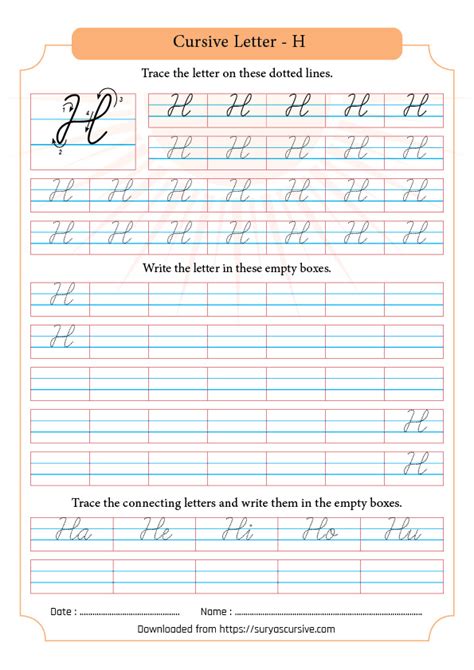 Cursive Letter - H
Trace the letter on these dotted lines.
H 1 2 3 4 H H H H H
H H H H H
H H H H H H H
H H H H H H H
Write the letter in these empty boxes.
H
H
H
H
Trace the connecting letters and write them in the empty boxes.
Ha He Hi Ho Hu
Date : ........................................ Name : ........................................................................
Downloaded from https://suryascursive.com